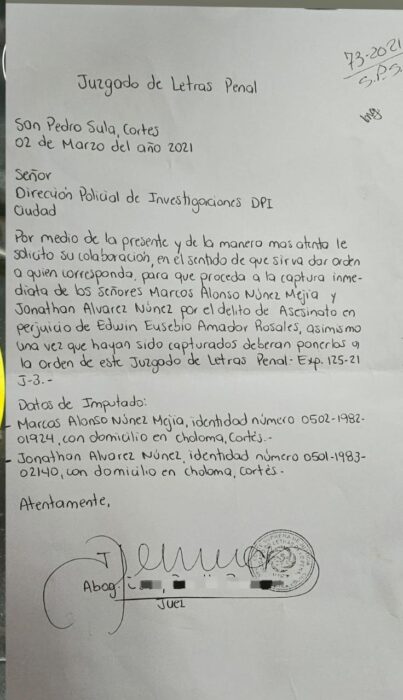 73-2021
S.P.S.
Juzgado de Letras Penal
San Pedro Sula, Cortes
02 de Marzo del año 2021
Señor
Dirección Policial de Investigaciones DPI
Ciudad
Por medio de la presente y de la manera mas atenta le
solicito su colaboración, en el sentido de que sirva dar orden
a quien corresponda, para que proceda a la captura inme-
diata de los Señores Marcos Alonso Núnez Mejia y
Jonathan Alvarez Núnez por el delito de Asesinato en
perjuicio de Edwin Eusebio Amador Rosales, asimismo
una vez que hayan sido capturados deberan ponerlos a
la orden de este Juzgado de Letras Penal. Exp. 125-21
J-3.-
Datos de Imputado:
- Marcos Alonso Núnez Mejia, identidad número 0502-1982-
01924, con domicilio en choloma, Cortés.-
- Jonathan Alvarez Núnez, identidad número 0501-1983-
02140, con domicilio en choloma, Cortés.-
Atentamente,
Abog.
Juez